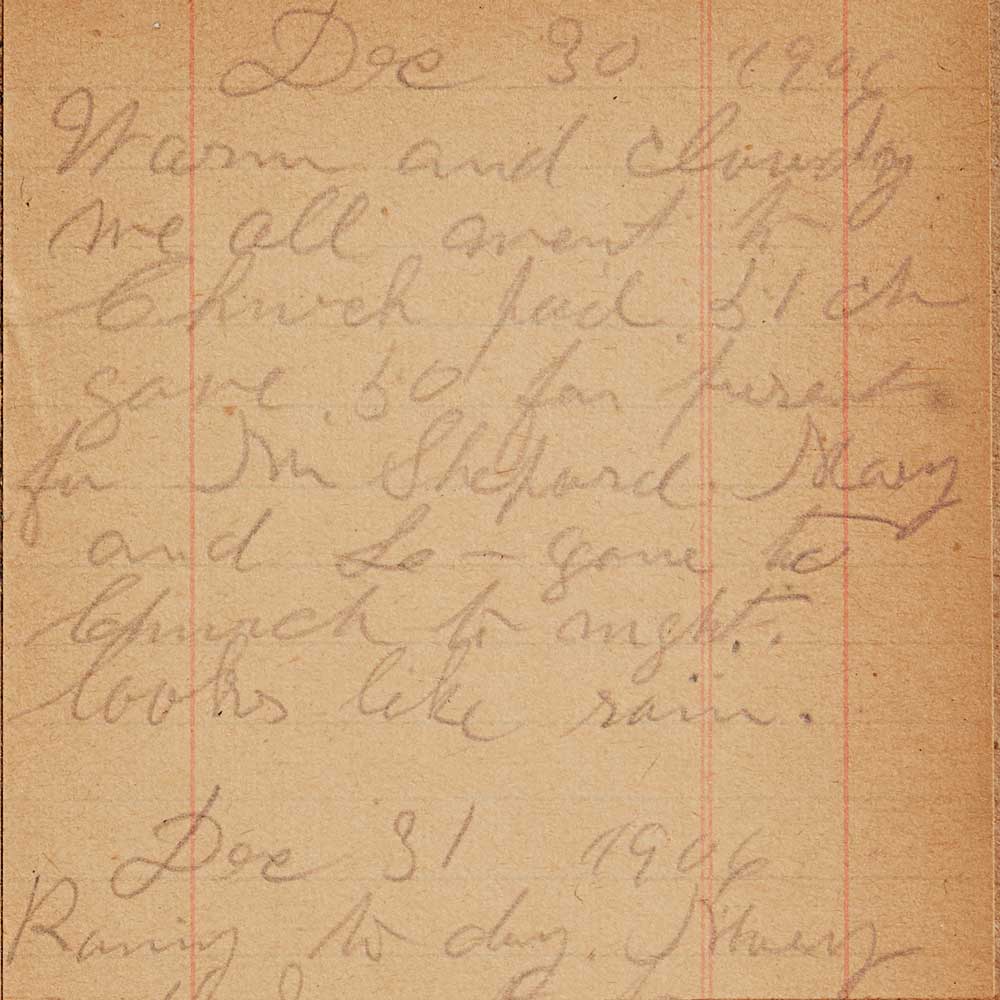 Dec 30 1906
Warm and cloudy
we all went to
Church paid .51 ch
gave .50 for present
for Mr Shepard. Mary
and Le - gone to
Church to night.
looks like rain.
Dec 31 1906
Rainy to day. Mary